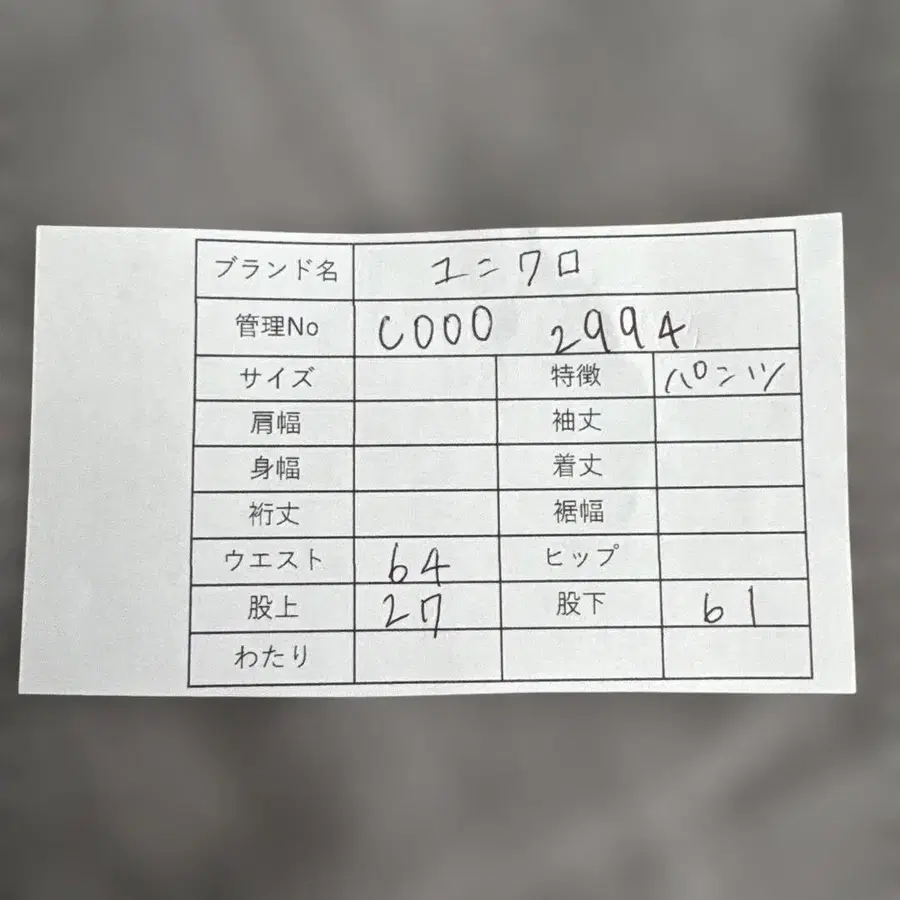 ブランド名 ユニクロ
管理No C000 2994
サイズ 特徴 パンツ
肩幅 袖丈
身幅 着丈
裄丈 裾幅
ウエスト 64 ヒップ
股上 27 股下 61
わたり